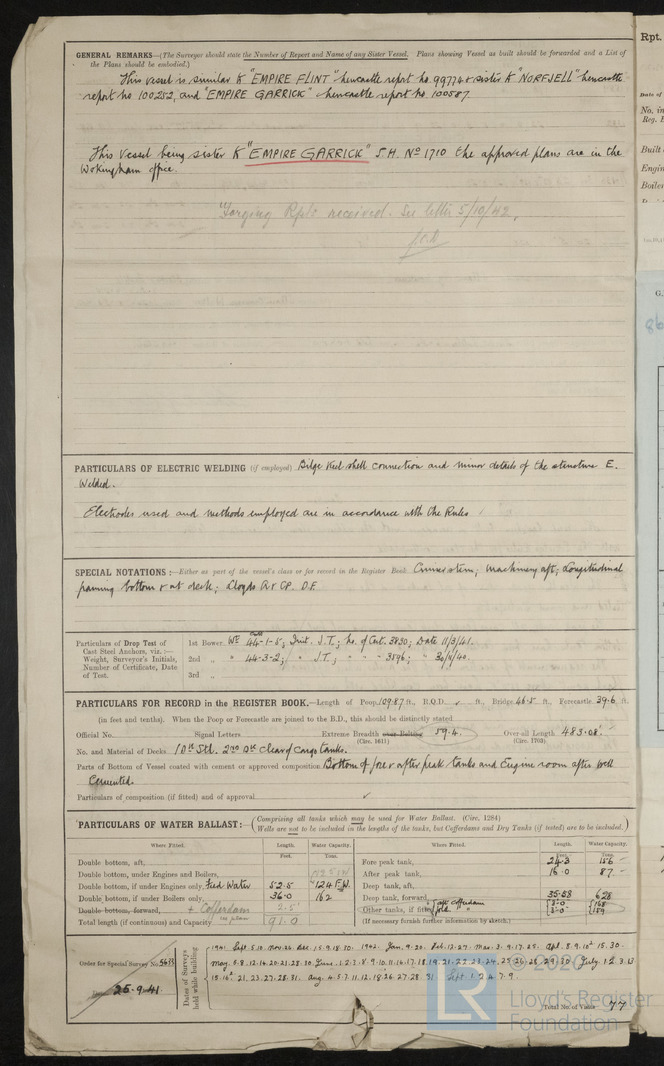 GENERAL REMARKS—(The Surveyor should state the Number of Report and Name of any Sister Vessel. Plans showing Vessel as built should be forwarded and a List of
the Plans should be embodied.)
This vessel is similar to "EMPIRE FLINT" Newcastle report no. 99774 & sister to "NORFJELL" Newcastle
report no 100252, and "EMPIRE GARRICK" Newcastle report no. 100587
This vessel being sister to "EMPIRE GARRICK" S.H. No 1710 the approved plans are in the
Wokingham office.
Forging Rpts received. See letter 5/10/42.
PARTICULARS OF ELECTRIC WELDING (if employed) Bilge keel shell connection and minor details of the structure E.
Welded.
Electrodes used and methods employed are in accordance with the Rules
SPECIAL NOTATIONS:—Either as part of the vessel's class or for record in the Register Book. Cruiser stern; Machinery aft; Longitudinal
framing bottom & at deck; Lloyds A & CP. D.F.
Particulars of Drop Test of
Cast Steel Anchors, viz.:—
Weight, Surveyor's Initials,
Number of Certificate, Date
of Test.
1st Bower. Wt 44-1-5; Init. J.T.; No. of Cert. 3830; Date 11/3/41.
2nd " " 44-3-2; " J.T.; " " " 3596; "
3rd "
PARTICULARS FOR RECORD in the REGISTER BOOK.—Length of Poop 109.87 ft., R.Q.D. ft., Bridge 46.5 ft., Forecastle 39.6 ft.
(in feet and tenths). When the Poop or Forecastle are joined to the B.D., this should be distinctly stated
Official No. Signal Letters Extreme Breadth over Belting 59.4. Over-all Length 483.08
(Circ. 1611) (Circ. 1703)
No. and Material of Decks 1 Dk Stl. 2nd Dk Clear of Cargo tanks.
Parts of Bottom of Vessel coated with cement or approved composition Bottom of fore & after peak tanks and Engine room after well
Cemented.
Particulars of composition (if fitted) and of approval
PARTICULARS OF WATER BALLAST:— (Comprising all tanks which may be used for Water Ballast. (Circ. 1284)
Wells are not to be included in the lengths of the tanks, but Cofferdams and Dry Tanks (if tested) are to be included.)
Where Fitted. Length. Water Capacity. Where Fitted. Length. Water Capacity.
Feet. Tons. Feet. Tons.
Double bottom, aft,
Double bottom, under Engines and Boilers,
Double bottom, if under Engines only, Feed Water 52.5 124 F.W.
Double bottom, if under Boilers only, 36.0 162
Double bottom, forward, + Cofferdam 2.5
Total length (if continuous) and Capacity 91.0
Fore peak tank, 24.3 156
After peak tank, 16.0 87
Deep tank, aft,
Deep tank, forward, 35.58 628
Other tanks, if fitted, aft cofferdam 3.0 168
fwd " 3.0 159
(If necessary furnish further information by sketch.)
Order for Special Survey No. 5675
Date 25.9.41
Dates of Surveys
held while building
Total No. of Visits 77
© 2020
LR
Lloyd's Register
Foundation
Rpt.
Date of
No. in
Reg. B
Built
Engin
Boiler